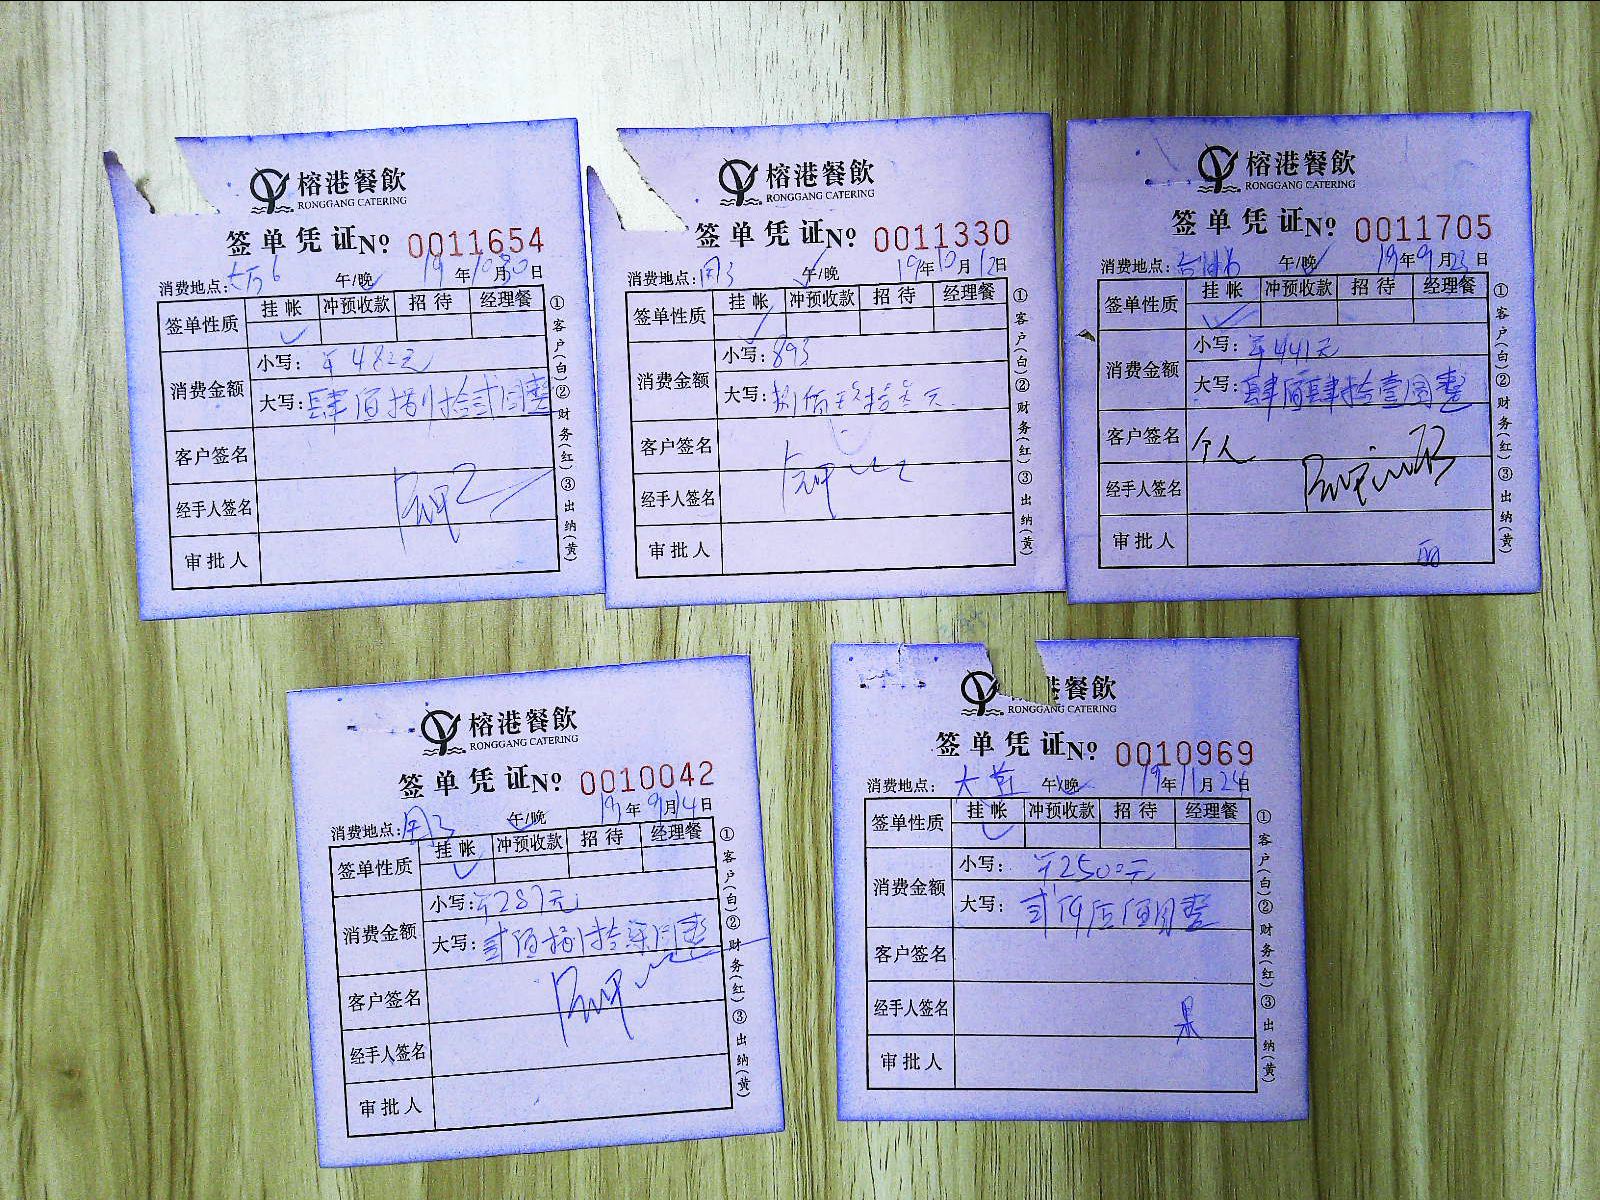 榕港餐飲
RONGGANG CATERING
签单凭证№ 0011654
消费地点: 午/晚 19年10月30日
签单性质 挂帐 冲预收款 招待 经理餐
消费金额
小写: ¥482元
大写: 肆佰捌拾贰圆整
客户签名
经手人签名
审批人
①客户(白)②财务(红)③出纳(黄)
榕港餐飲
RONGGANG CATERING
签单凭证№ 0011330
消费地点: 午/晚 19年10月12日
签单性质 挂帐 冲预收款 招待 经理餐
消费金额
小写: 893
大写: 捌佰玖拾叁元
客户签名
经手人签名
审批人
①客户(白)②财务(红)③出纳(黄)
榕港餐飲
RONGGANG CATERING
签单凭证№ 0011705
消费地点: 午/晚 19年9月23日
签单性质 挂帐 冲预收款 招待 经理餐
消费金额
小写: ¥441元
大写: 肆佰肆拾壹圆整
客户签名 个人
经手人签名
审批人
①客户(白)②财务(红)③出纳(黄)
榕港餐飲
RONGGANG CATERING
签单凭证№ 0010042
消费地点: 午/晚 19年9月14日
签单性质 挂帐 冲预收款 招待 经理餐
消费金额
小写: ¥287元
大写: 贰佰捌拾柒圆整
客户签名
经手人签名
审批人
①客户(白)②财务(红)③出纳(黄)
港餐飲
RONGGANG CATERING
签单凭证№ 0010969
消费地点: 大堂 午/晚 19年11月24日
签单性质 挂帐 冲预收款 招待 经理餐
消费金额
小写: ¥2500元
大写: 贰仟伍佰圆整
客户签名
经手人签名
审批人
①客户(白)②财务(红)③出纳(黄)